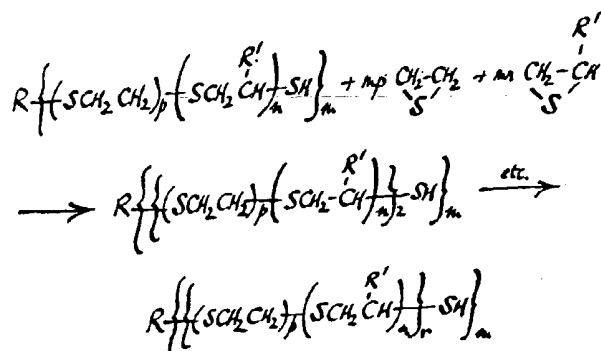 R{(SCH₂CH₂)ₚ(SCH₂CH(R'))ₙSH}ₘ + mp CH₂-CH₂ S + mn CH₂-CH(R') S
⟶ R{{(SCH₂CH₂)ₚ(SCH₂-CH(R'))ₙ}₂SH}ₘ etc. ⟶
R{{(SCH₂CH₂)ₚ(SCH₂CH(R'))ₙ}ᵣSH}ₘ